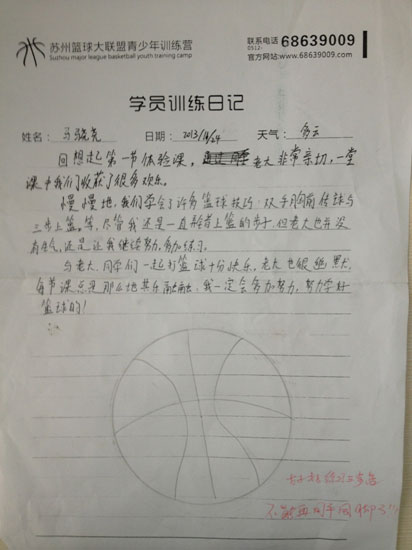 苏州篮球大联盟青少年训练营
Suzhou major league basketball youth training camp
联系电话 0512- 68639009
官方网站:www.68639009.com
学员训练日记
姓名: 马骁尧 日期: 2013/8/29 天气: 多云
回想起第一节体验课, 老大非常亲切,一堂
课中我们收获了很多欢乐。
慢慢地,我们学会了许多篮球技巧:双手胸前传球与
三步上篮。等,尽管我还是一直 上篮的 但老大也并没
有 还是让我继续努力,多加练习。
与老大、同学们一起打篮球十分快乐,老大也很幽默,
每节课总是那么地其乐融融,我一定会多加努力,努力学好
篮球的!
好好练习三步篮
不能再 脚了!!